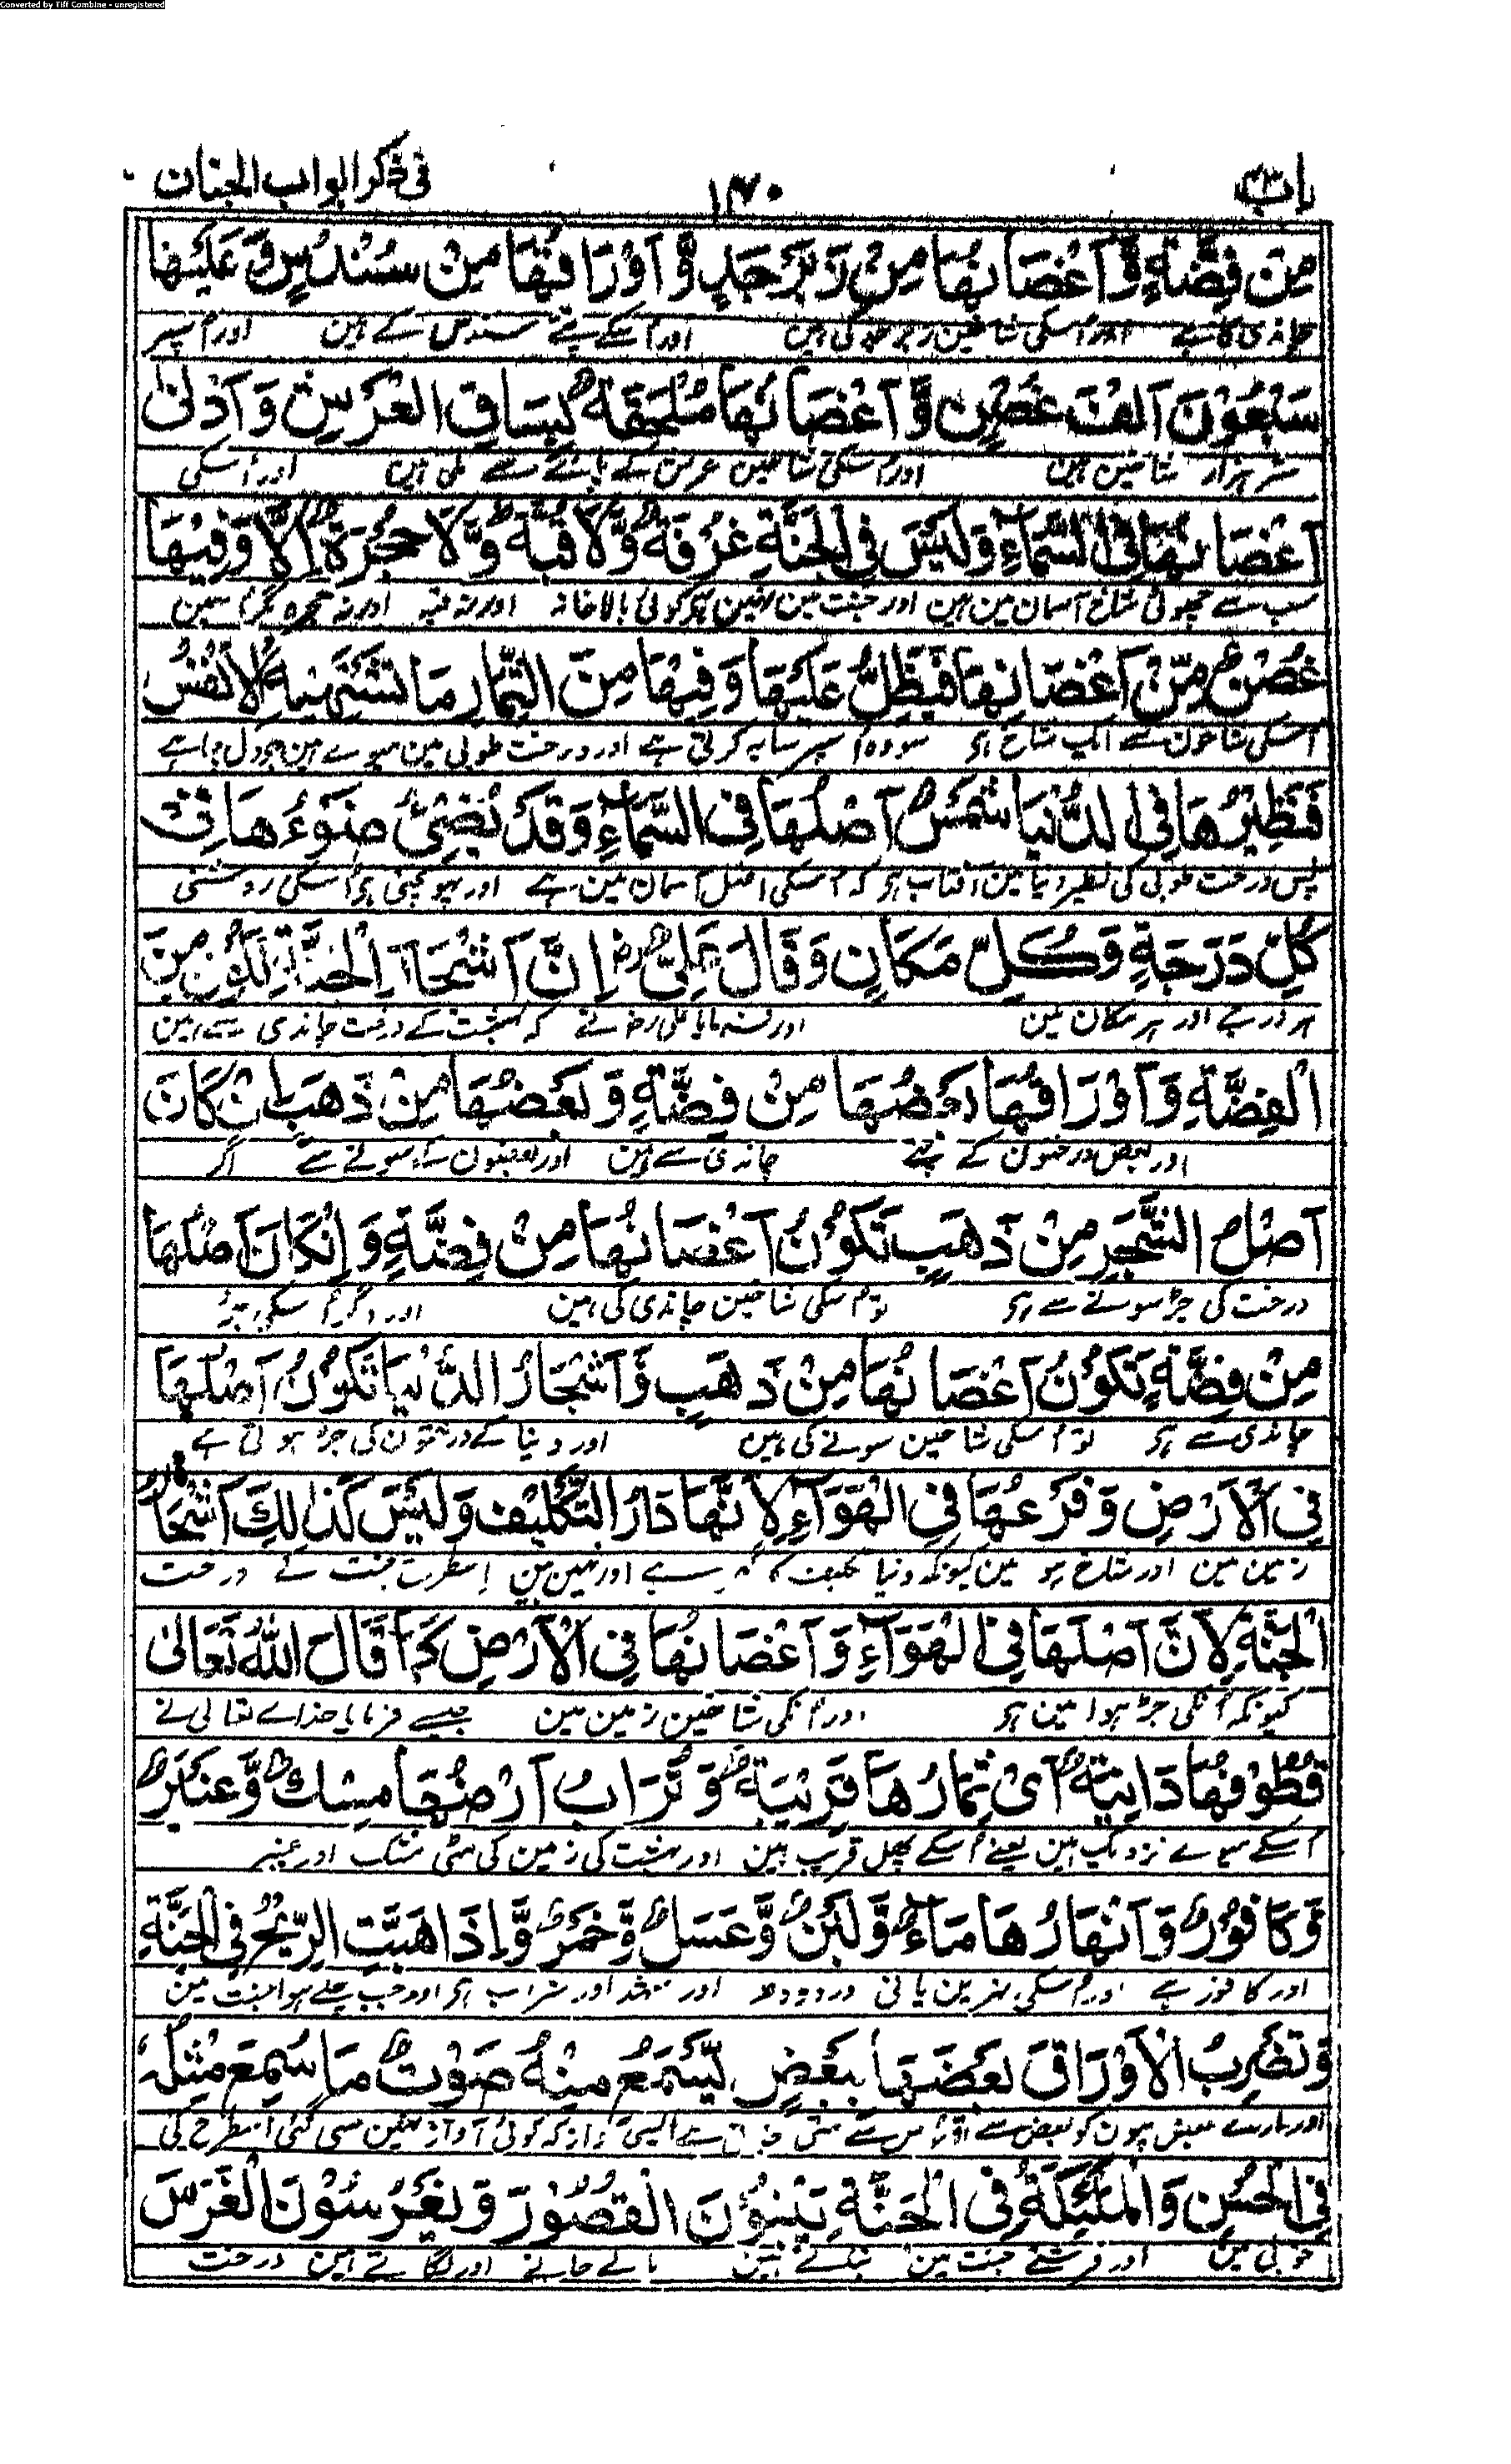 Converted by Tiff Combine - unregistered
باب ۴۳ ۱۴۰ فی ذکر ابواب الجنان
مِنْ فِضَّةٍ وَّاَغْصَانُهَا مِنْ زَبَرْجَدٍ وَّاَوْرَاقُهَا مِنْ سُنْدُسٍ وَّعَلَيْهَا
چاندی کا ہے اور اُسکی شاخین زبرجد کی ہین اور اُسکے پتے سندس کے ہین اور اُسپر
سَبْعُوْنَ اَلْفَ غُصْنٍ وَّاَغْصَانُهَا مُلْحَقَةٌ بِسَاقِ الْعَرْشِ وَاَدْنٰى
ستر ہزار شاخین ہین اور اُسکی شاخین عرش کے پائے سے ملی ہین اور اُسکی
اَغْصَانِهَا فِی السَّمَآءِ وَلَيْسَ فِی الْجَنَّةِ غُرْفَةٌ وَّلَا قُبَّةٌ وَّلَا حُجْرَةٌ اِلَّا وَفِيْهَا
سب سے چھوٹی شاخ آسمان مین ہین اور جنت مین نہین ہے کوئی بالاخانہ اور نہ قبہ اور نہ حجرہ مگر اسمین
غُصْنٌ مِّنْ اَغْصَانِهَا فَيُظِلُّ عَلَيْهَا وَفِيْهَا مِنَ الثِّمَارِ مَا تَشْتَهِيْهِ الْاَنْفُسُ
اُسکی شاخون سے ایک شاخ ہے سو وہ اُسپر سایہ کرتی ہے اور درخت طوبی مین میوے ہین جو دل چاہے
فَنَظِيْرُهَا فِی الدُّنْيَا شَمْسٌ اَصْلُهَا فِی السَّمَآءِ وَقَدْ يُضِیْءُ ضَوْءُهَا فِیْ
پس درخت طوبی کی نظیر دنیا مین آفتاب ہے کہ اُسکی اصل آسمان مین ہے اور پہونچتی ہے اُسکی روشنی
كُلِّ دَرَجَةٍ وَّكُلِّ مَكَانٍ وَقَالَ عَلِیٌّ رض اِنَّ اَشْجَارَ الْجَنَّةِ تَكُوْنُ مِنَ
ہر درجے اور ہر مکان مین اور فرمایا علی رض نے کہ بہشت کے درخت چاندی سے ہین
الْفِضَّةِ وَاَوْرَاقُهَا بَعْضُهَا مِنْ فِضَّةٍ وَّبَعْضُهَا مِنْ ذَهَبٍ اِنْ كَانَ
اور بعض درختون کے پتے چاندی سے ہین اور بعضون کے سونے سے اگر
اَصْلُ الشَّجَرِ مِنْ ذَهَبٍ تَكُوْنُ اَغْصَانُهَا مِنْ فِضَّةٍ وَاِنْ كَانَ اَصْلُهَا
درخت کی جڑ سونے سے ہے تو اُسکی شاخین چاندی کی ہین اور اگر اُسکی جڑ
مِنْ فِضَّةٍ تَكُوْنُ اَغْصَانُهَا مِنْ ذَهَبٍ وَّاَشْجَارُ الدُّنْيَا تَكُوْنُ اَصْلُهَا
چاندی سے ہے تو اُسکی شاخین سونے کی ہین اور دنیا کے درختون کی جڑ ہوتی ہے
فِی الْاَرْضِ وَفَرْعُهَا فِی الْهَوَآءِ لِاَنَّهَا دَارُ التَّكْلِيْفِ وَلَيْسَ كَذٰلِكَ اَشْجَارُ
زمین مین اور شاخ ہو مین کیونکہ دنیا تکلیف کا گھر ہے اور نہین ہین اسطرح جنت کے درخت
الْجَنَّةِ لِاَنَّ اَصْلَهَا فِی الْهَوَآءِ وَاَغْصَانُهَا فِی الْاَرْضِ كَمَا قَالَ اللّٰهُ تَعَالٰى
کیونکہ اُنکی جڑ ہوا مین ہے اور اُنکی شاخین زمین مین جیسے فرمایا خداے تعالی نے
قُطُوْفُهَا دَانِيَةٌ اَیْ ثِمَارُهَا قَرِيْبَةٌ وَّتُرَابُ اَرْضِهَا مِسْكٌ وَّعَنْبَرٌ
اُسکے میوے نزدیک ہین یعنے اُسکے پھل قریب ہین اور بہشت کی زمین کی مٹی مشک اور عنبر
وَّكَافُوْرٌ وَّاَنْهَارُهَا مَآءٌ وَّلَبَنٌ وَّعَسَلٌ وَّخَمْرٌ وَّاِذَا هَبَّتِ الرِّيْحُ فِی الْجَنَّةِ
اور کافور ہے اور اُسکی نہرین پانی اور دودھ اور شہد اور شراب ہے اور جب چلے ہوا جنت مین
وَتَضْرِبُ الْاَوْرَاقَ بَعْضَهَا بِبَعْضٍ يُّسْمَعُ مِنْهُ صَوْتٌ مَا سُمِعَ مِثْلُهٗ
اور مارے بعض پتون کو بعض سے تو اُس سے سنی جاتی ہے ایسی آواز کہ کوئی آواز نہین سنی گئی اُسطرح کی
فِی الْحُسْنِ وَالْمَلٰئِكَةُ فِی الْجَنَّةِ يَبْنُوْنَ الْقُصُوْرَ وَيَغْرِسُوْنَ الْغَرْسَ
خوبی مین اور فرشتے جنت مین بناتے ہین اور لگاتے ہین درخت